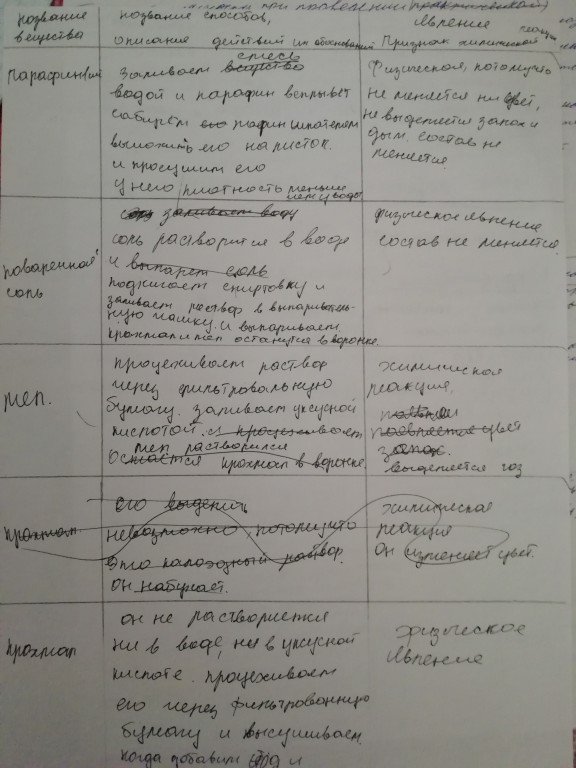 при проведении практической
название вещества
название способов,
описание действий их обоснование
явление
Признак химической реакции
Парафин
смесь
заливаем вещество
водой и парафин всплывёт
сабирём его пафин шпателем
выложить его на листок.
и просушим его
у него плотность меньше
чем у воды
Физическая, потомучто
не меняется ни цвет,
не выделяется запах и
дым. состав не
меняется.
поваренная
соль
соль заливаем воду
соль растворится в воде
и выпарем соль
поджигаем спиртовку и
заливаем раствор в выпаритель-
ную чашку и выпариваем.
крахмал и мел останутся в воронке.
физическое явление
состав не меняется.
мел.
процеживаем раствор
через фильтровальную
бумагу. заливаем уксусной
кислотой. и процеживаем
мел растворился
Остаётся крахмал в воронке.
химическая
реакция,
цвет
запах.
выделяется газ
крахмал
его выделить
невозможно, потомучто
это калоэдный раствор.
он набухает.
химическая
реакция
он изменяет цвет.
крахмал
он не растворяется
ни в воде, ни в уксусной
кислоте. процеживаем
его через фильтрованную
бумагу и высушиваем.
когда добавим йод и
физическое
явление